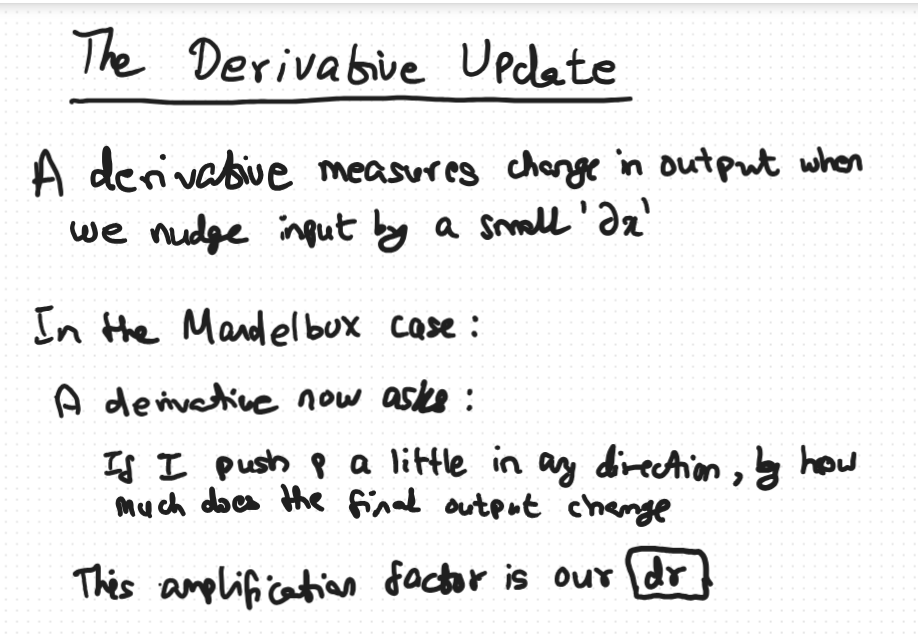 The Derivative Update
A derivative measures change in output when
we nudge input by a small '∂x'
In the Mandelbox case :
A derivative now asks :
If I push p a little in any direction, by how
much does the final output change
This amplification factor is our dr